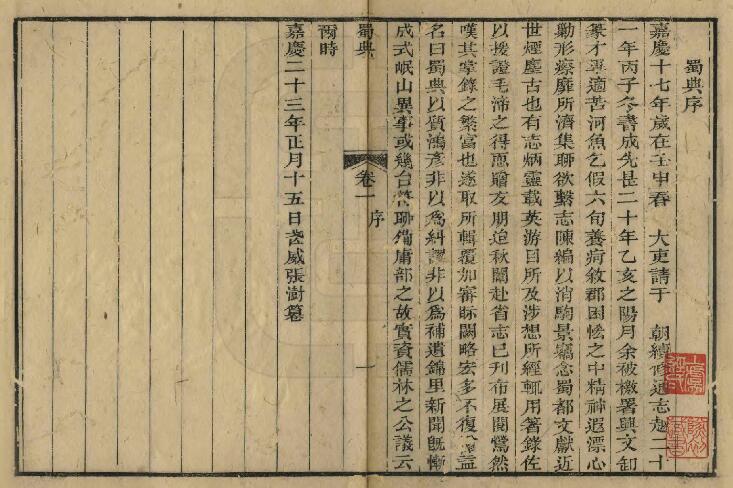 蜀典序
嘉慶十七年歲在壬申春　大吏請于　朝續修通志越二十
一年丙子冬書成先是二十年乙亥之陽月余被檄署興文卸
篆才再適苦河魚乞假六旬養疴敘郡困憊之中精神遐漂心
勦形瘵靡所濟集聊欲繫志陳編以消駒景竊念蜀都文獻近
世煙塵古也有志炳靈載英游目所及涉想所經輒用箸錄佐
以援證毛滯之得悥贈友朋迫秋闈赴省志已刊布展閱鴬然
嘆其掌錄之繁富也遂取所輯覆加審眎闕略宏多不復益
名曰蜀典以質鴻彥非以為糾謬非以為補遺錦里新聞旣慚
成式岷山異事或幾台符聊備庸部之故實資儒林之公議云
蜀典
卷一
序
一
爾時
嘉慶二十三年正月十五日武威張澍纂